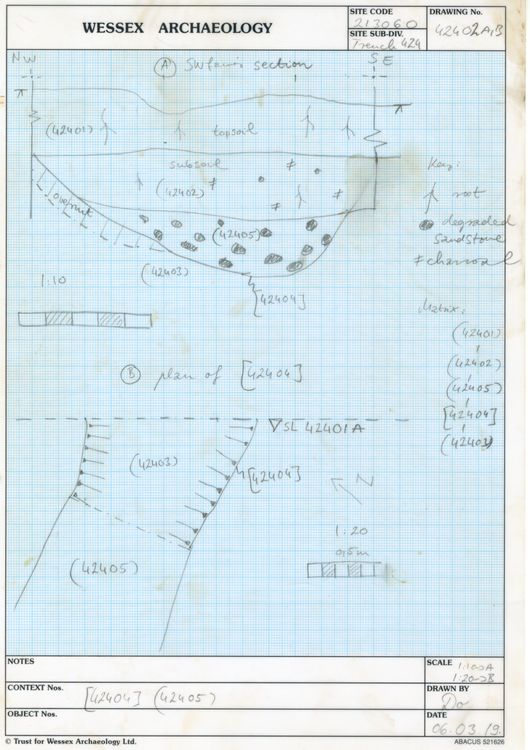 WESSEX ARCHAEOLOGY
SITE CODE
213060
SITE SUB-DIV.
Trench 424
DRAWING No.
42402A,B
NW
SE
A SW facing section
(42401)
topsoil
subsoil
(42402)
overcut
(42405)
(42403)
[42404]
1:10
Key:
root
degraded
sandstone
charcoal
Matrix:
(42401)
(42402)
(42405)
[42404]
(42403)
B plan of [42404]
SL 42401A
(42403)
[42404]
N
(42405)
1:20
0,5m
NOTES
CONTEXT Nos.
[42404] (42405)
OBJECT Nos.
SCALE 1:10→A
1:20→B
DRAWN BY
DATE
06.03.19.
© Trust for Wessex Archaeology Ltd.
ABACUS 521626